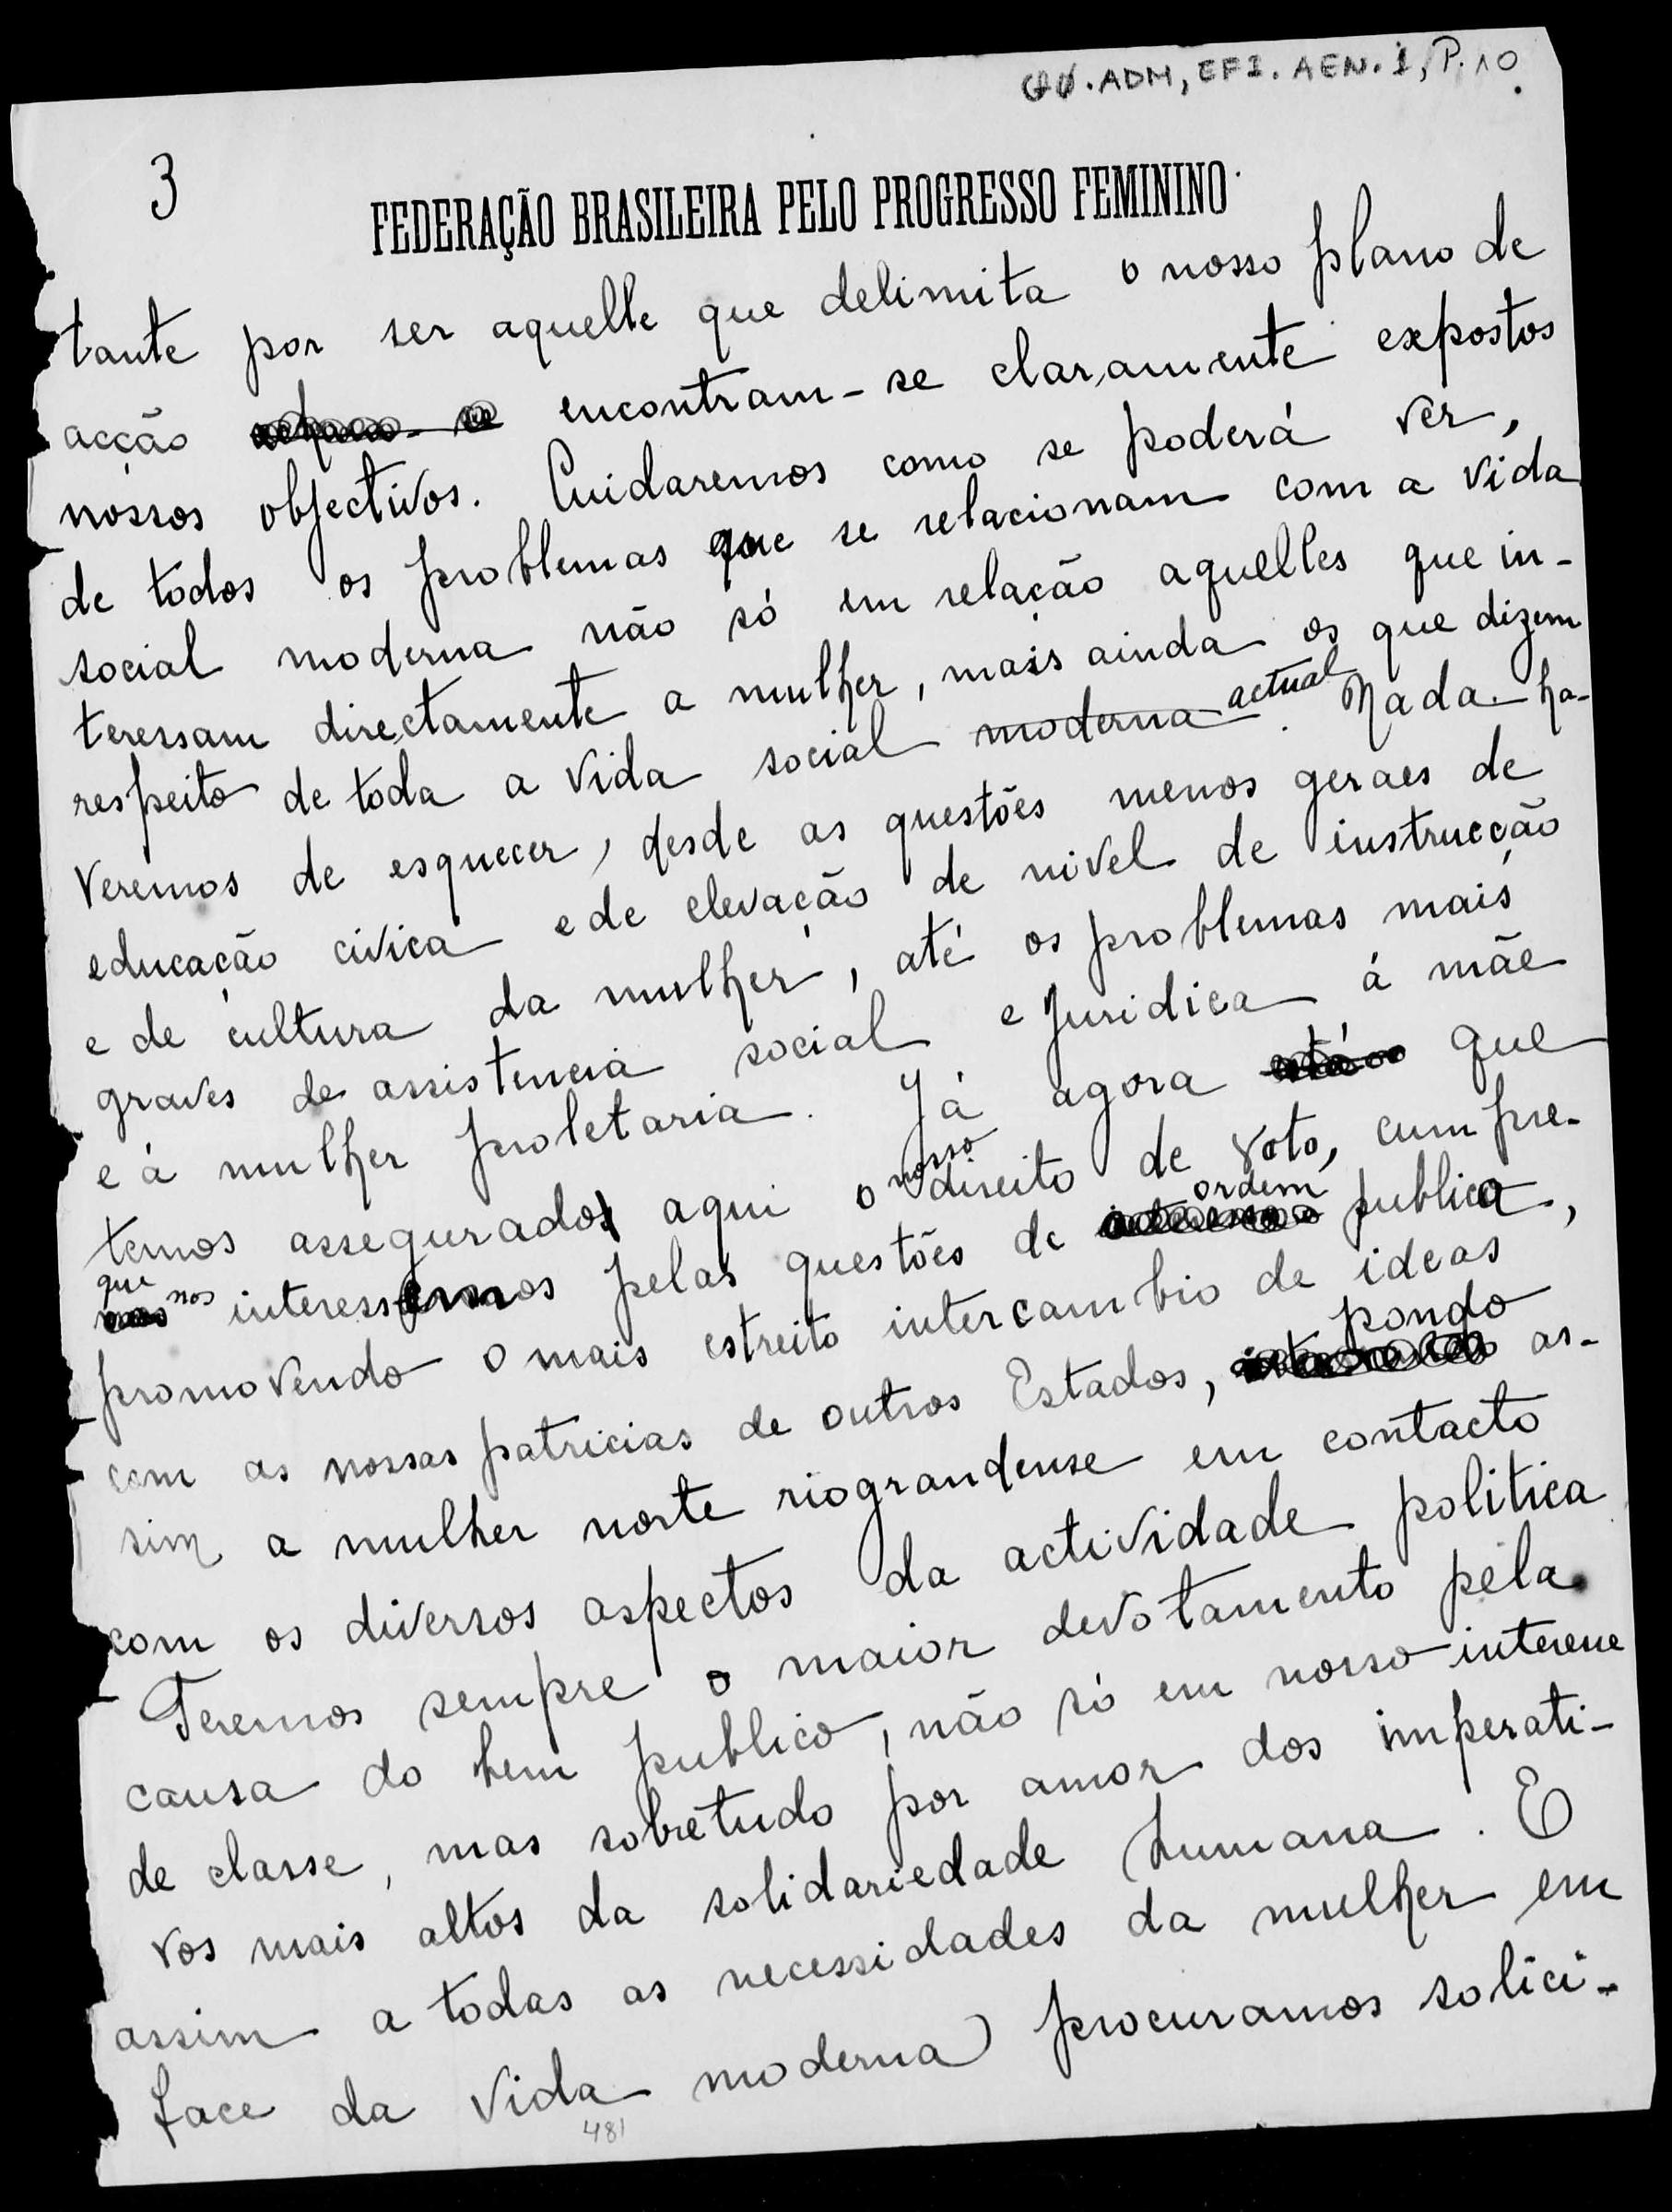 Q0.ADM, EFI. AEN. 1, P. 10
3
FEDERAÇÃO BRASILEIRA PELO PROGRESSO FEMININO
tante por ser aquelle que delimita o nosso plano de
acção encontram-se claramente expostos
nossos objectivos. Cuidaremos como se poderá ver,
de todos os problemas que se relacionam com a vida
social moderna não só em relação aquelles que in-
teressam directamente a mulher, mais ainda os que dizem
respeito de toda a vida social moderna actual. Nada ha-
veremos de esquecer, desde as questões menos geraes de
educação civica e de elevação de nivel de instrucção
e de cultura da mulher, até os problemas mais
graves de assistencia social e juridica á mãe
e á mulher proletaria. Já agora que
temos assegurado aqui o nosso direito de voto, cumpre
que nos interessemos pelas questões de ordem publica,
promovendo o mais estreito intercambio de ideas
com as nossas patricias de outros Estados, pondo as-
sim a mulher norte riograndense em contacto
com os diversos aspectos da actividade politica
Teremos sempre o maior devotamento pela
causa do bem publico, não só em nosso interesse
de classe, mas sobretudo por amor dos imperati-
vos mais altos da solidariedade humana. E
assim a todas as necessidades da mulher em
face da vida moderna procuramos solici-
481